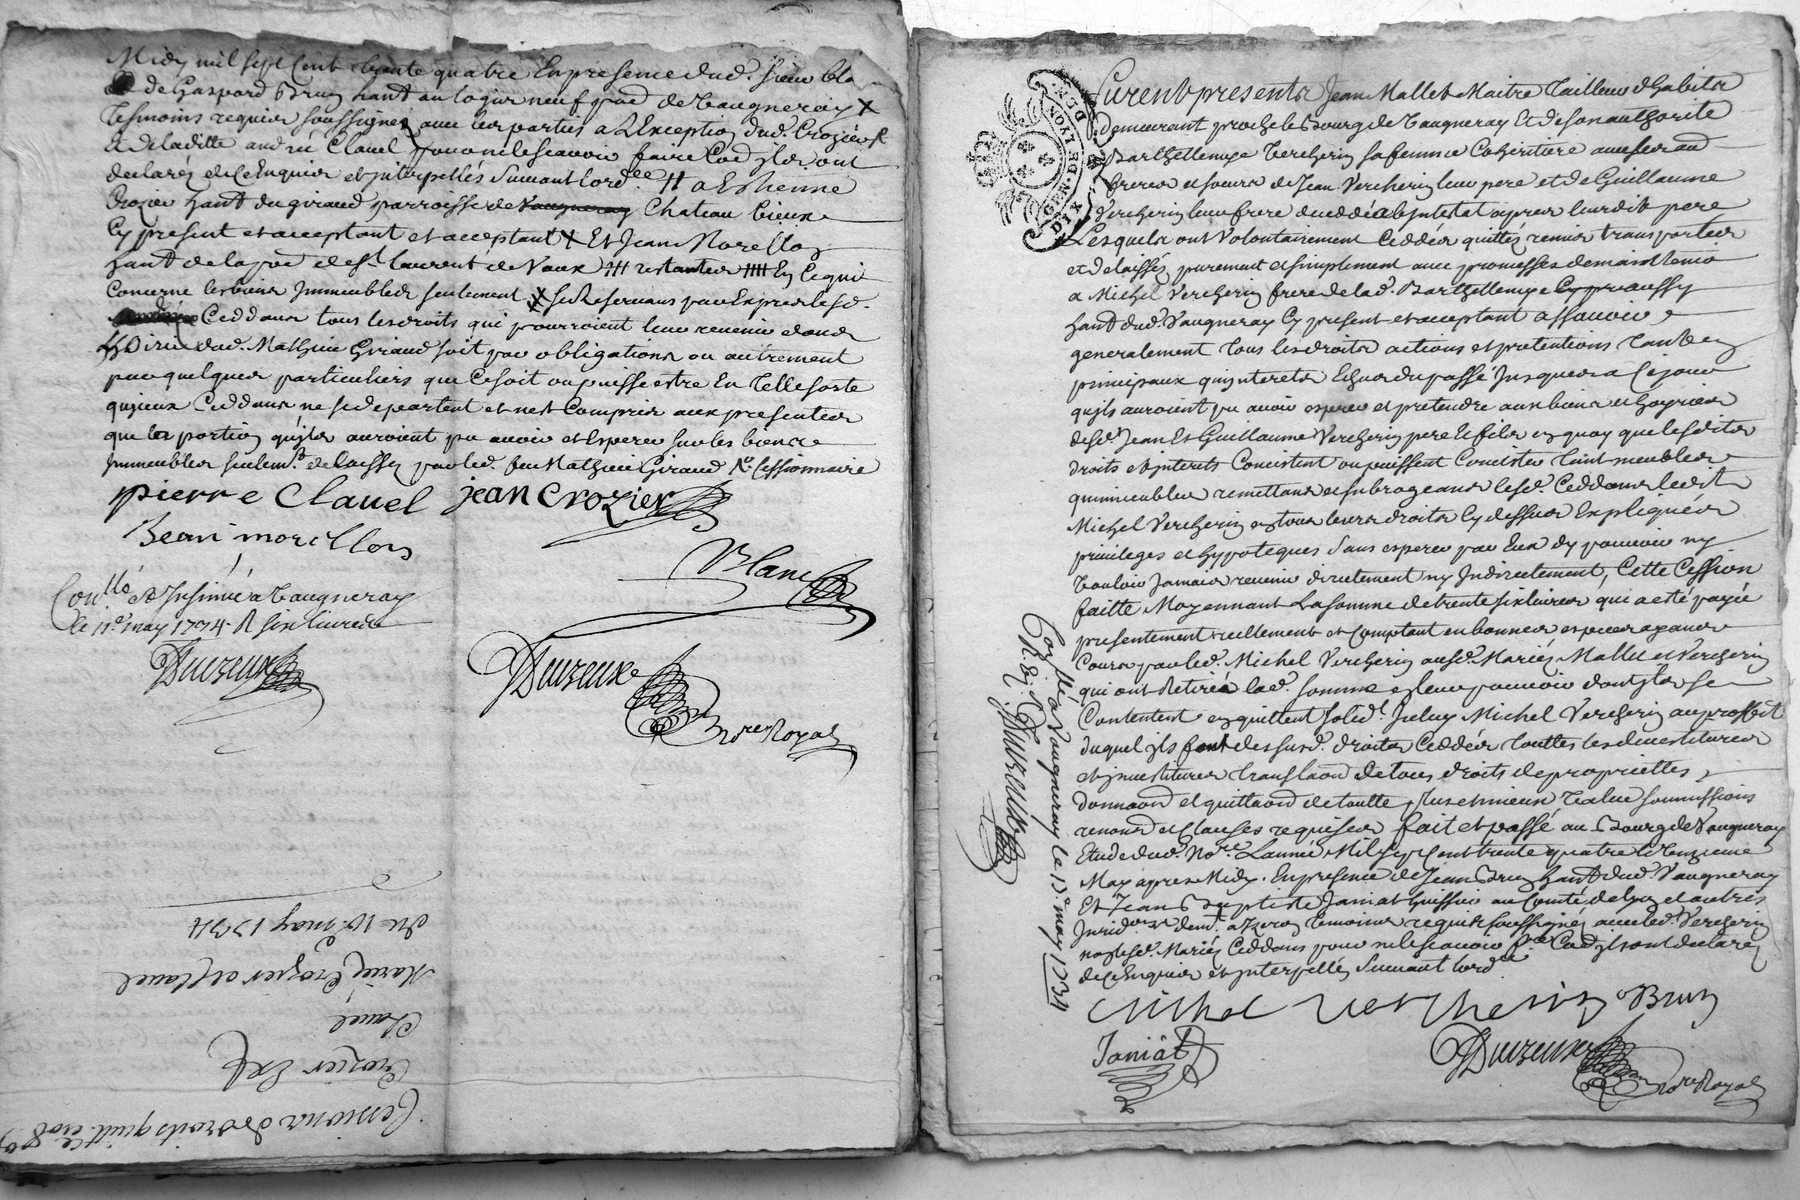 Midy mil sept Cent trente quatre En presence dud. sieur Bla
de Gaspard Brun hant au logis neuf de Vaugneray X
tesmoins requis soussignes avec les parties a L'Exception dud. Crozier
et de laditte andrée Clavel pour ne le scavoir faire Cod. ils ont
declaréz de ce Enquis et interpellés suivant lord.ce # a Estienne
Crozier hant du giraud parroisse de Vaugneray Chateau Vieux
Cy present et acceptant et acceptant X Et Jean Morellon
hant de la p. de St. Laurent de Vaux ### restantes #### En Ce qui
Concerne les biens Immeubles seulement X se Reservans par Exprès lesd
Ceddans tous les droits qui pourroient leur revenir dans
dud. Mathieu Giraud soit par obligations ou autrement
par quelques particuliers que Ce soit ou puisse estre En Telle sorte
qu'iceux Ceddans ne se departent et n'est Compris aux presentes
que les portions qu'ils auroient pu avoir et Esperer sur les biens
Immeubles seulem.t delaissés par led. feu Mathieu Giraud Cessionnaire
pierre Clavel jean Crozier
Jean morillon
Blanc
Con.llé et Insinué a Vaugneray
le 11e may 1734. R six livres
Duvzeux
Duvzeux
No.re Royal
Cessions de droits
Crozier
Clavel
Mariés Crozier et Clavel
Du 10e may 1734
GEN. DE LYON
DIX DEN.
Furent presents Jean Mallet Maitre Tailleur d'habits
demeurant proche le Bourg de Vaugneray Et de son authorité
Barthellemye Vercherin sa femme Coheritiere avec ses
freres et soeurs de Jean Vercherin leur pere et de Guillaume
Vercherin leur frere decedé abintestat apres leurdit pere
Lesquels ont Volontairement Ceddés quittés remis transportés
et delaissés purement et simplement avec promesses de maintenir
a Michel Vercherin frere de lad. Barthellemye
hant dud. Vaugneray Cy present et acceptant assavoir
generalement tous les droits actions et pretentions tant En
principaux qu'interets Echus du passé Jusques a Ce jour
qu'ils auroient pu avoir esperer et pretendre aux biens et hoyries
desd. Jean Et Guillaume Vercherin pere Et fils en quoy que lesdits
droits et interets Consistent ou puissent Consister tant meubles
qu'immeubles remettans et subrogeans lesd. Ceddans ledit
Michel Vercherin en tous leurs droits Cy dessus Expliqués
privileges et hypoteques Sans esperer par Eux d'y pouvoir ny
vouloir Jamais revenir directement ny Indirectement, Cette Cession
faitte Moyennant La somme de trente six livres qui a esté payée
presentement reellement et Comptant en bonnes especes ayant
Cours par led. Michel Vercherin ausd. Mariés Mallet et Vercherin
qui ont Retiré lad. somme en leur pouvoir dont ils se
Contentent en quittent solid.t Icelluy Michel Vercherin au proffit
duquel ils font des susd. droits Ceddés touttes les devestitures
et investitures translaon de tous droits de proprietté
donnaon et quittaon de toutte plus et mieux value soumissions
renons et Clauses requises fait et passé au Bourg de Vaugneray
Etude dud. No.re L'année Mil Sept Cent trente quatre Le onzieme
May apres Midy. En presence de Jean Brun hant dud. Vaugneray
Et Jean Baptiste Janiat huissier au Comté de Lyon et autres
Jurid. dem.t a Yzeron temoins requis soussignés avec led. Vercherin
non lesd. Mariés Ceddans pour ne le scavoir Cod. ils ont declaré
de Ce Enquis et interpellés suivant lord.ce
michel vercherin Brun
Janiat
Duvzeux
No.re Royal
Con.llé a Vaugneray le 11e may 1734
Duvzeux